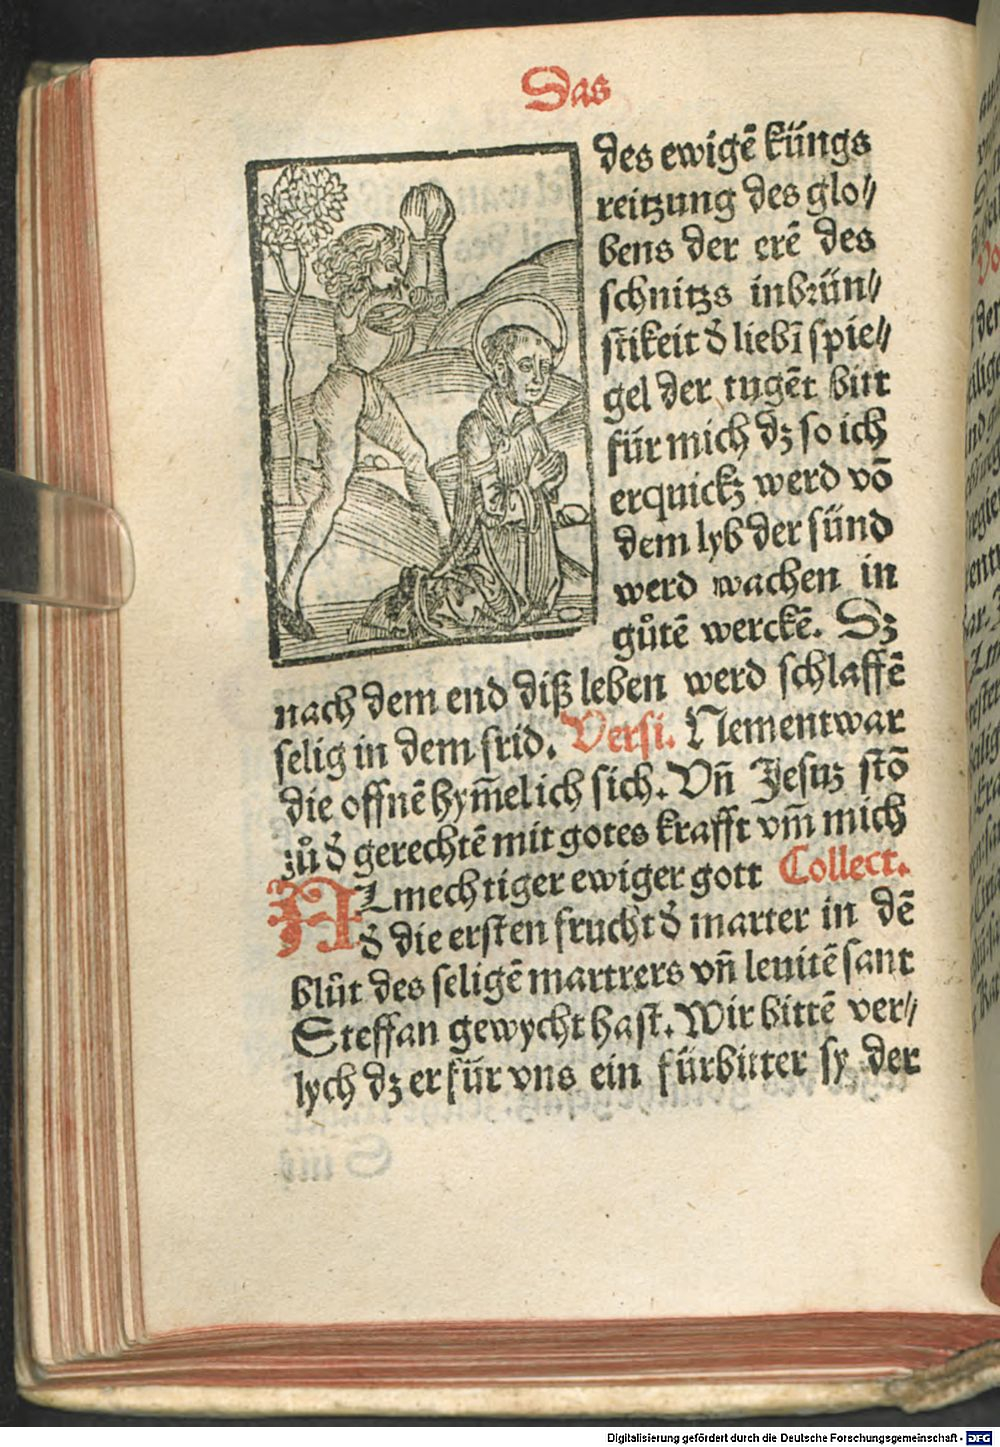 Das
des ewigē küngs
reitzung des glo⸗
bens der erē des
schnitzs inbrün⸗
stikeit đ liebī spie⸗
gel der tugēt bitt
für mich dz so ich
erquickz werd vō
dem lyb der sünd
werd wachen in
gůtē werckē. Sz
nach dem end diß leben werd schlaffē
selig in dem frid. Versi. Nement war
die offnē hym̄elich sich. Vn̄ Jesuz stō
zů đ gerechtē mit gotes krafft vm̄ mich
ALmechtiger ewiger gott Collect.
đ die ersten frucht đ marter in dē
blůt des seligē martrers vn̄ leuitē sant
Steffan gewycht hast. Wir bittē ver⸗
lych dz er für vns ein fürbitter sy der
Digitalisierung gefördert durch die Deutsche Forschungsgemeinschaft - DFG